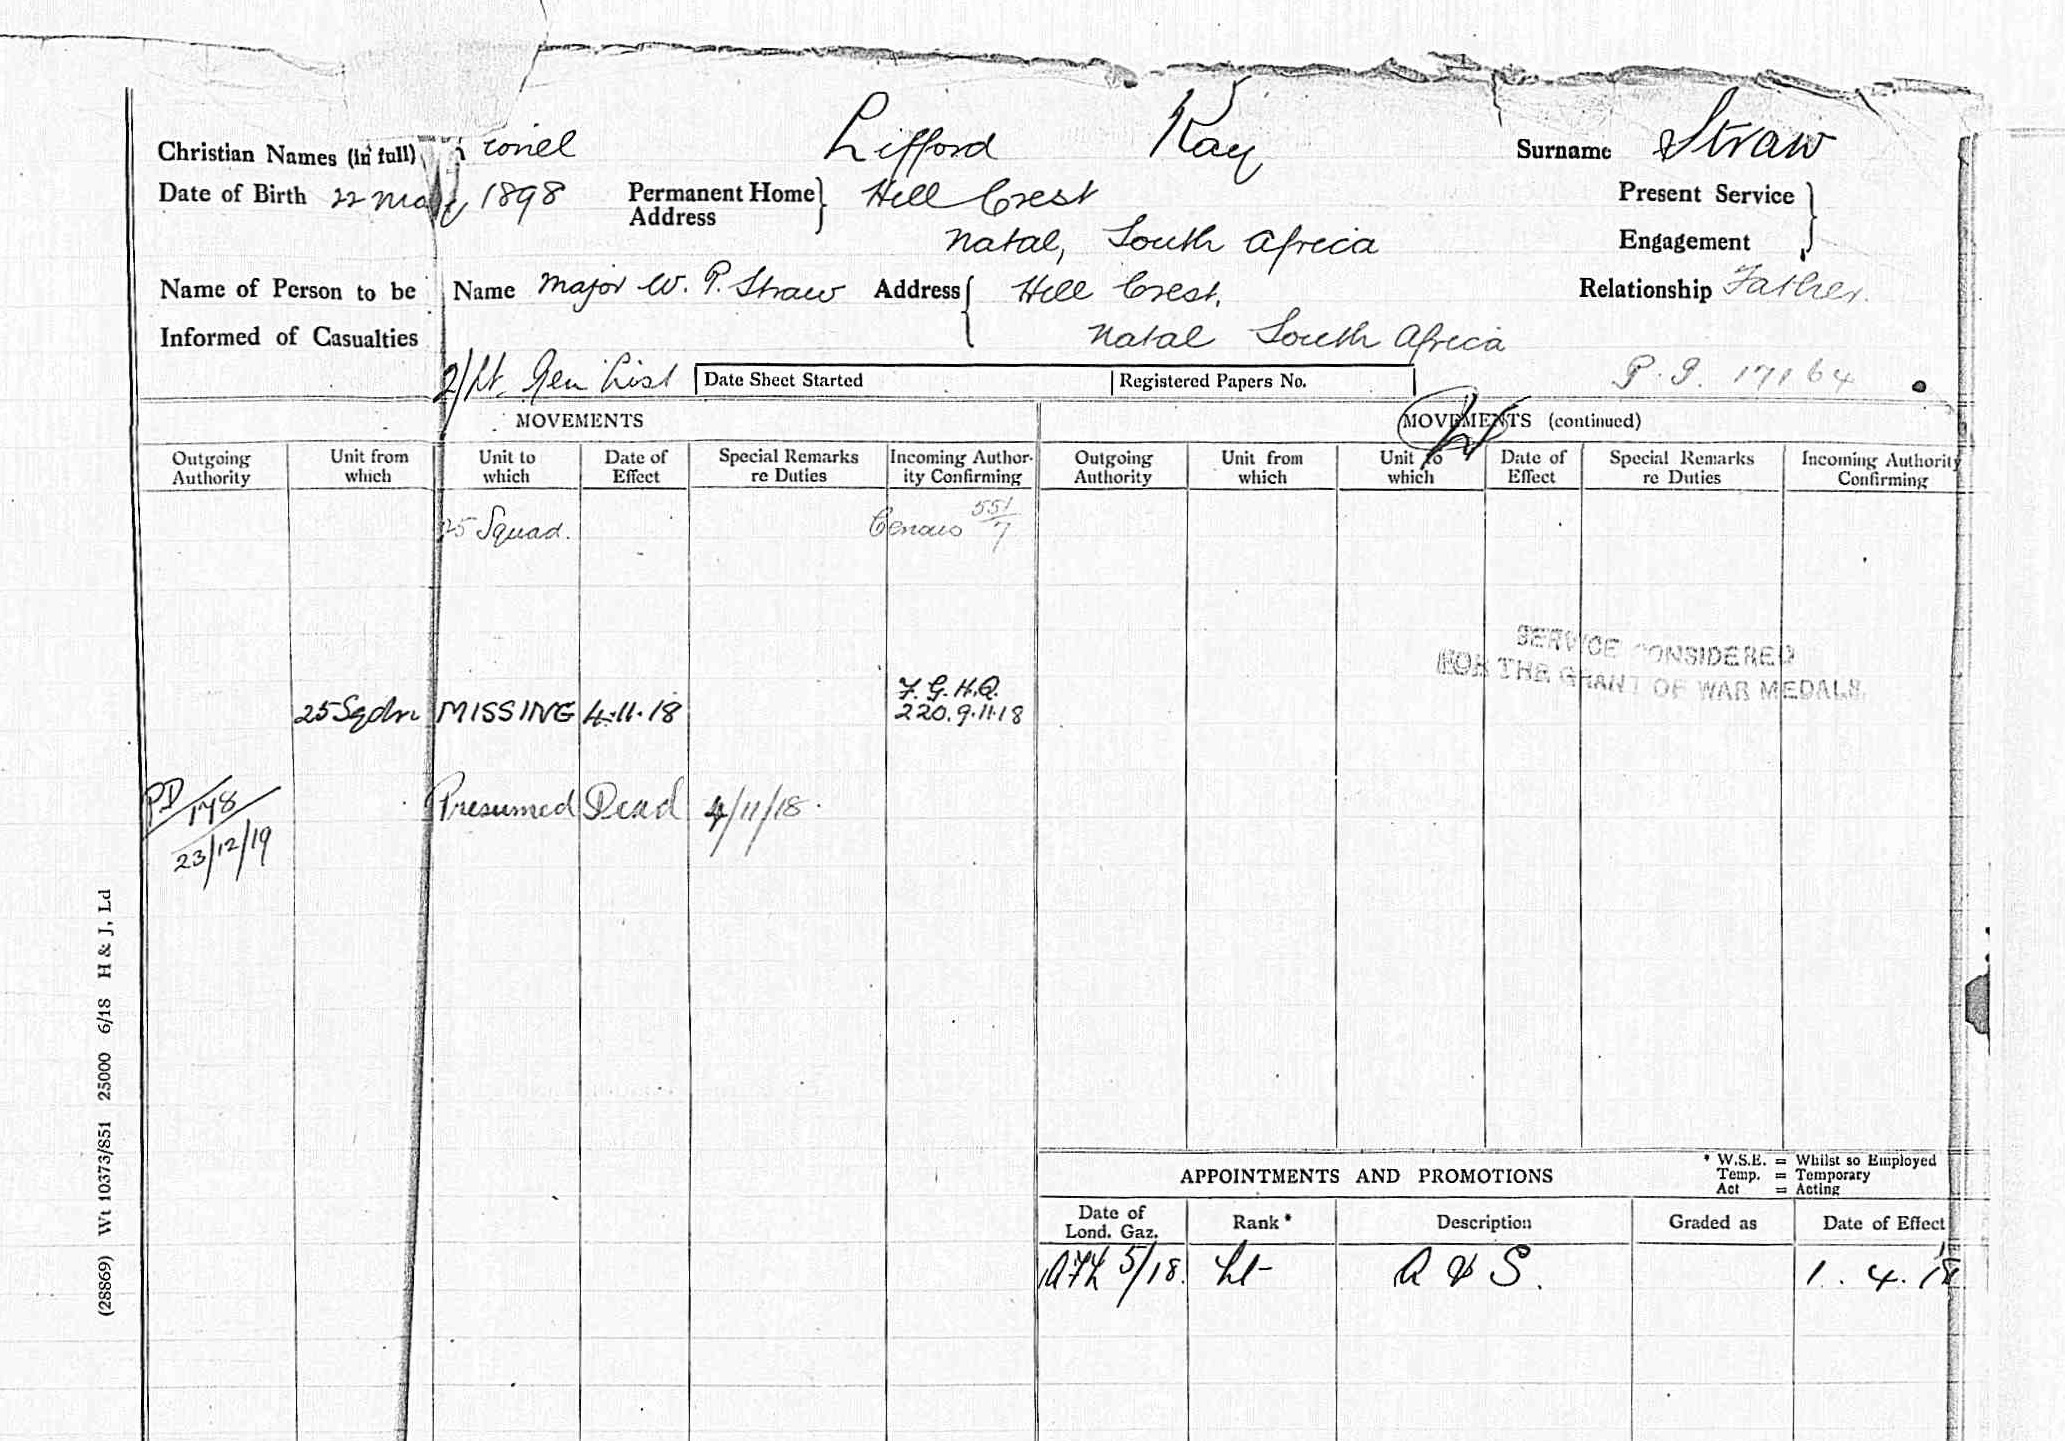 Christian Names (in full) ionel Lifford Kay Surname Straw
Date of Birth 22 May 1898 Permanent Home Address } Hill Crest Present Service
Natal, South Africa Engagement
Name of Person to be Name Major W. P. Straw Address { Hill Crest, Relationship Father.
Informed of Casualties Natal South Africa
2/Lt. Gen List Date Sheet Started Registered Papers No. P. I. 17164
MOVEMENTS MOVEMENTS (continued)
Outgoing Authority Unit from which Unit to which Date of Effect Special Remarks re Duties Incoming Authority Confirming Outgoing Authority Unit from which Unit to which Date of Effect Special Remarks re Duties Incoming Authority Confirming
25 Squad. Census 551/7
SERVICE CONSIDERED
FOR THE GRANT OF WAR MEDALS.
25 Sqdn MISSING 4.11.18 F.G.H.Q.
220. 9.11.18
PD/178 Presumed Dead 4/11/18.
23/12/19
(28869) Wt 10373/851 25000 6/18 H & J, Ld
APPOINTMENTS AND PROMOTIONS
* W.S.E. = Whilst so Employed
Temp. = Temporary
Act = Acting
Date of Lond. Gaz. Rank* Description Graded as Date of Effect
AFL 5/18. Lt A & S. 1. 4. 18